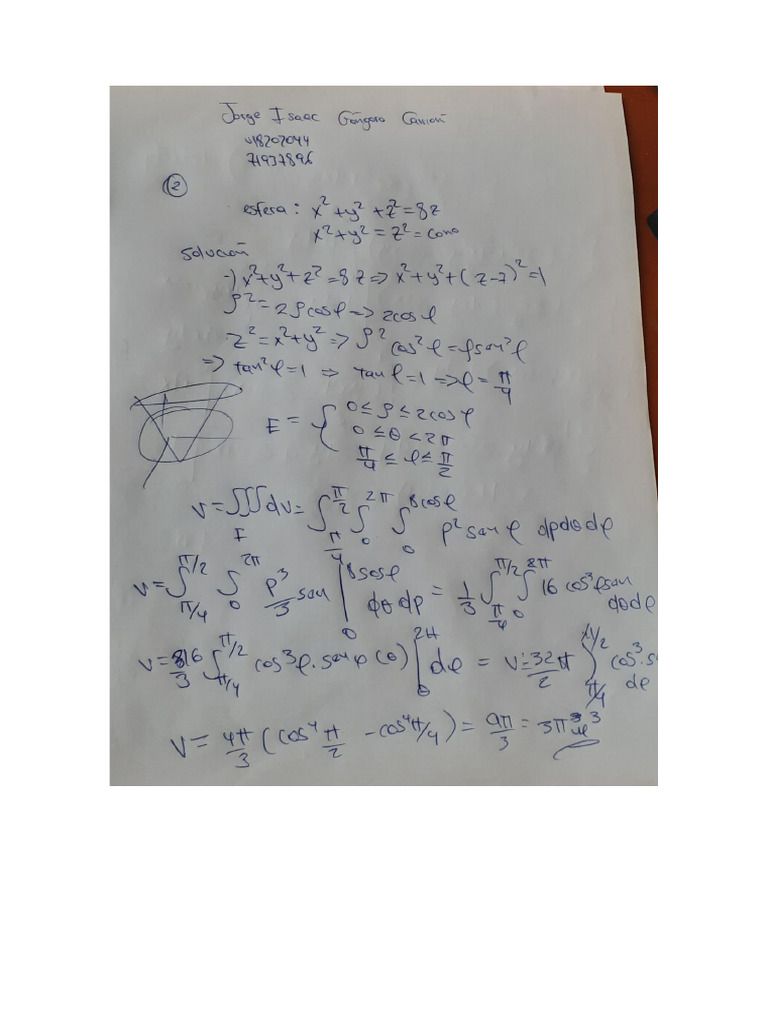 Jorge Isaac Góngora Carrión
U18202044
71937896
②
esfera: x² + y² + z² = 8z
x² + y² = z² = cono
Solución
-) x² + y² + z² = 8z => x² + y² + (z-7)² = 1
ρ² = 2ρcosφ => 2cosφ
z² = x² + y² => ρ² cos²φ = ρsan²φ
=> tan²φ = 1 => tanφ = 1 => φ = π/4
E = { 0 ≤ ρ ≤ 2cosφ
0 ≤ θ < 2π
π/4 ≤ φ ≤ π/2
V = ∭_E dV = ∫_{π/4}^{π/2} ∫_0^{2π} ∫_0^{8cosφ} ρ² sanφ dρdθdφ
V = ∫_{π/4}^{π/2} ∫_0^{2π} ρ³/3 san |_0^{8cosφ} dθdρ = 1/3 ∫_{π/4}^{π/2} ∫_0^{2π} 16 cos³φsan dθdφ
V = 816/3 ∫_{π/4}^{π/2} cos³φ.sanφ (θ) |_0^{2π} dφ = V = 32π/2 ∫_{π/4}^{π/2} cos³.s dφ
V = 4π/3 (cos⁴ π/2 - cos⁴ π/4) = 9π/3 = 3π